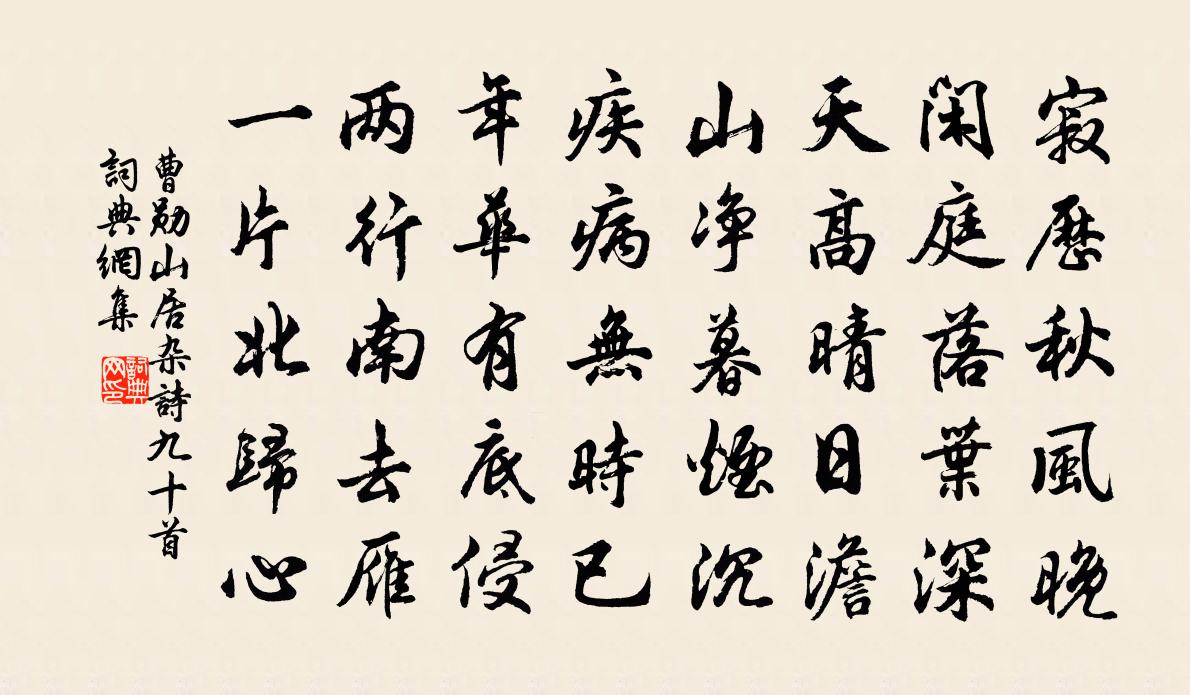 寂歷秋風晚
閑庭落葉深
天高晴日澹
山净暮煙沉
疾病無時已
年華有底侵
两行南去雁
一片北歸心
曹勛山居杂詩九十首
詞典網集
詞典网印